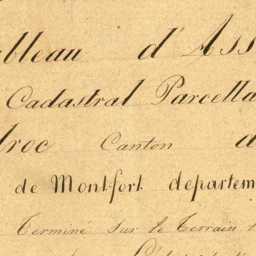 bleau d'Ass
Cadastral Parcella
roc Canton d
de Montfort departem
Terminé sur le Terrain